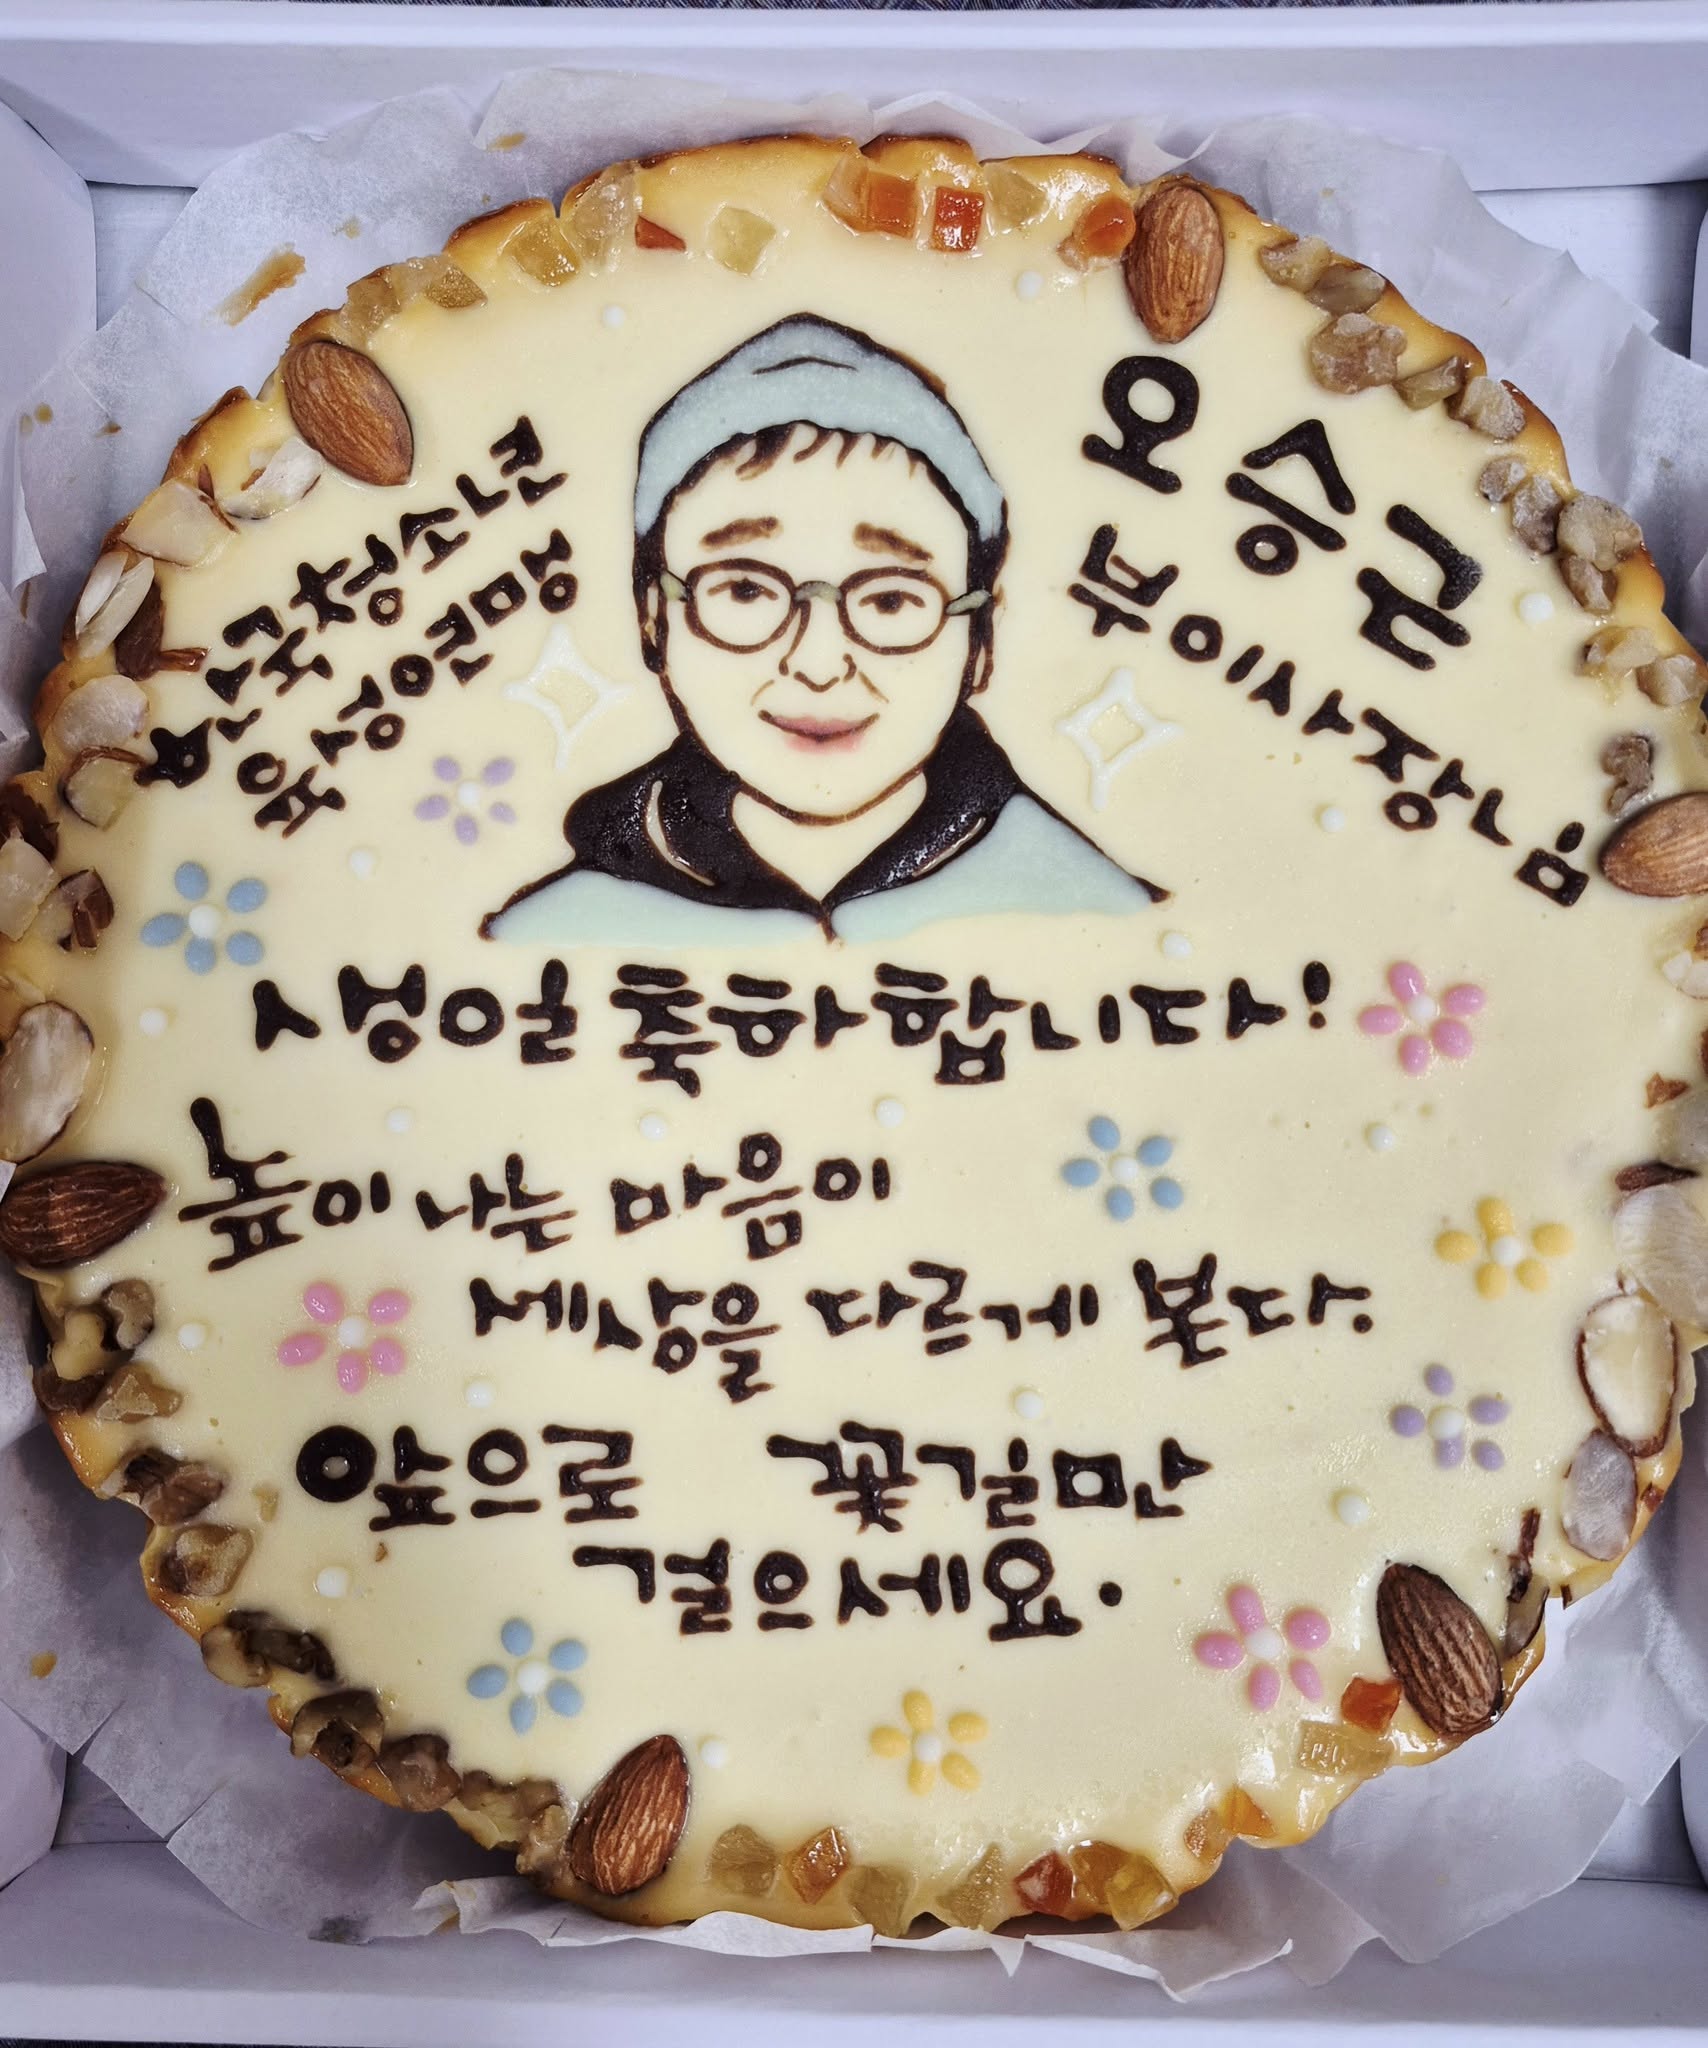 청소년
오승근
부이사장님
생일 축하합니다!
높이 나는 마음이
세상을 다르게 본다.
앞으로 꽃길만
걸으세요.